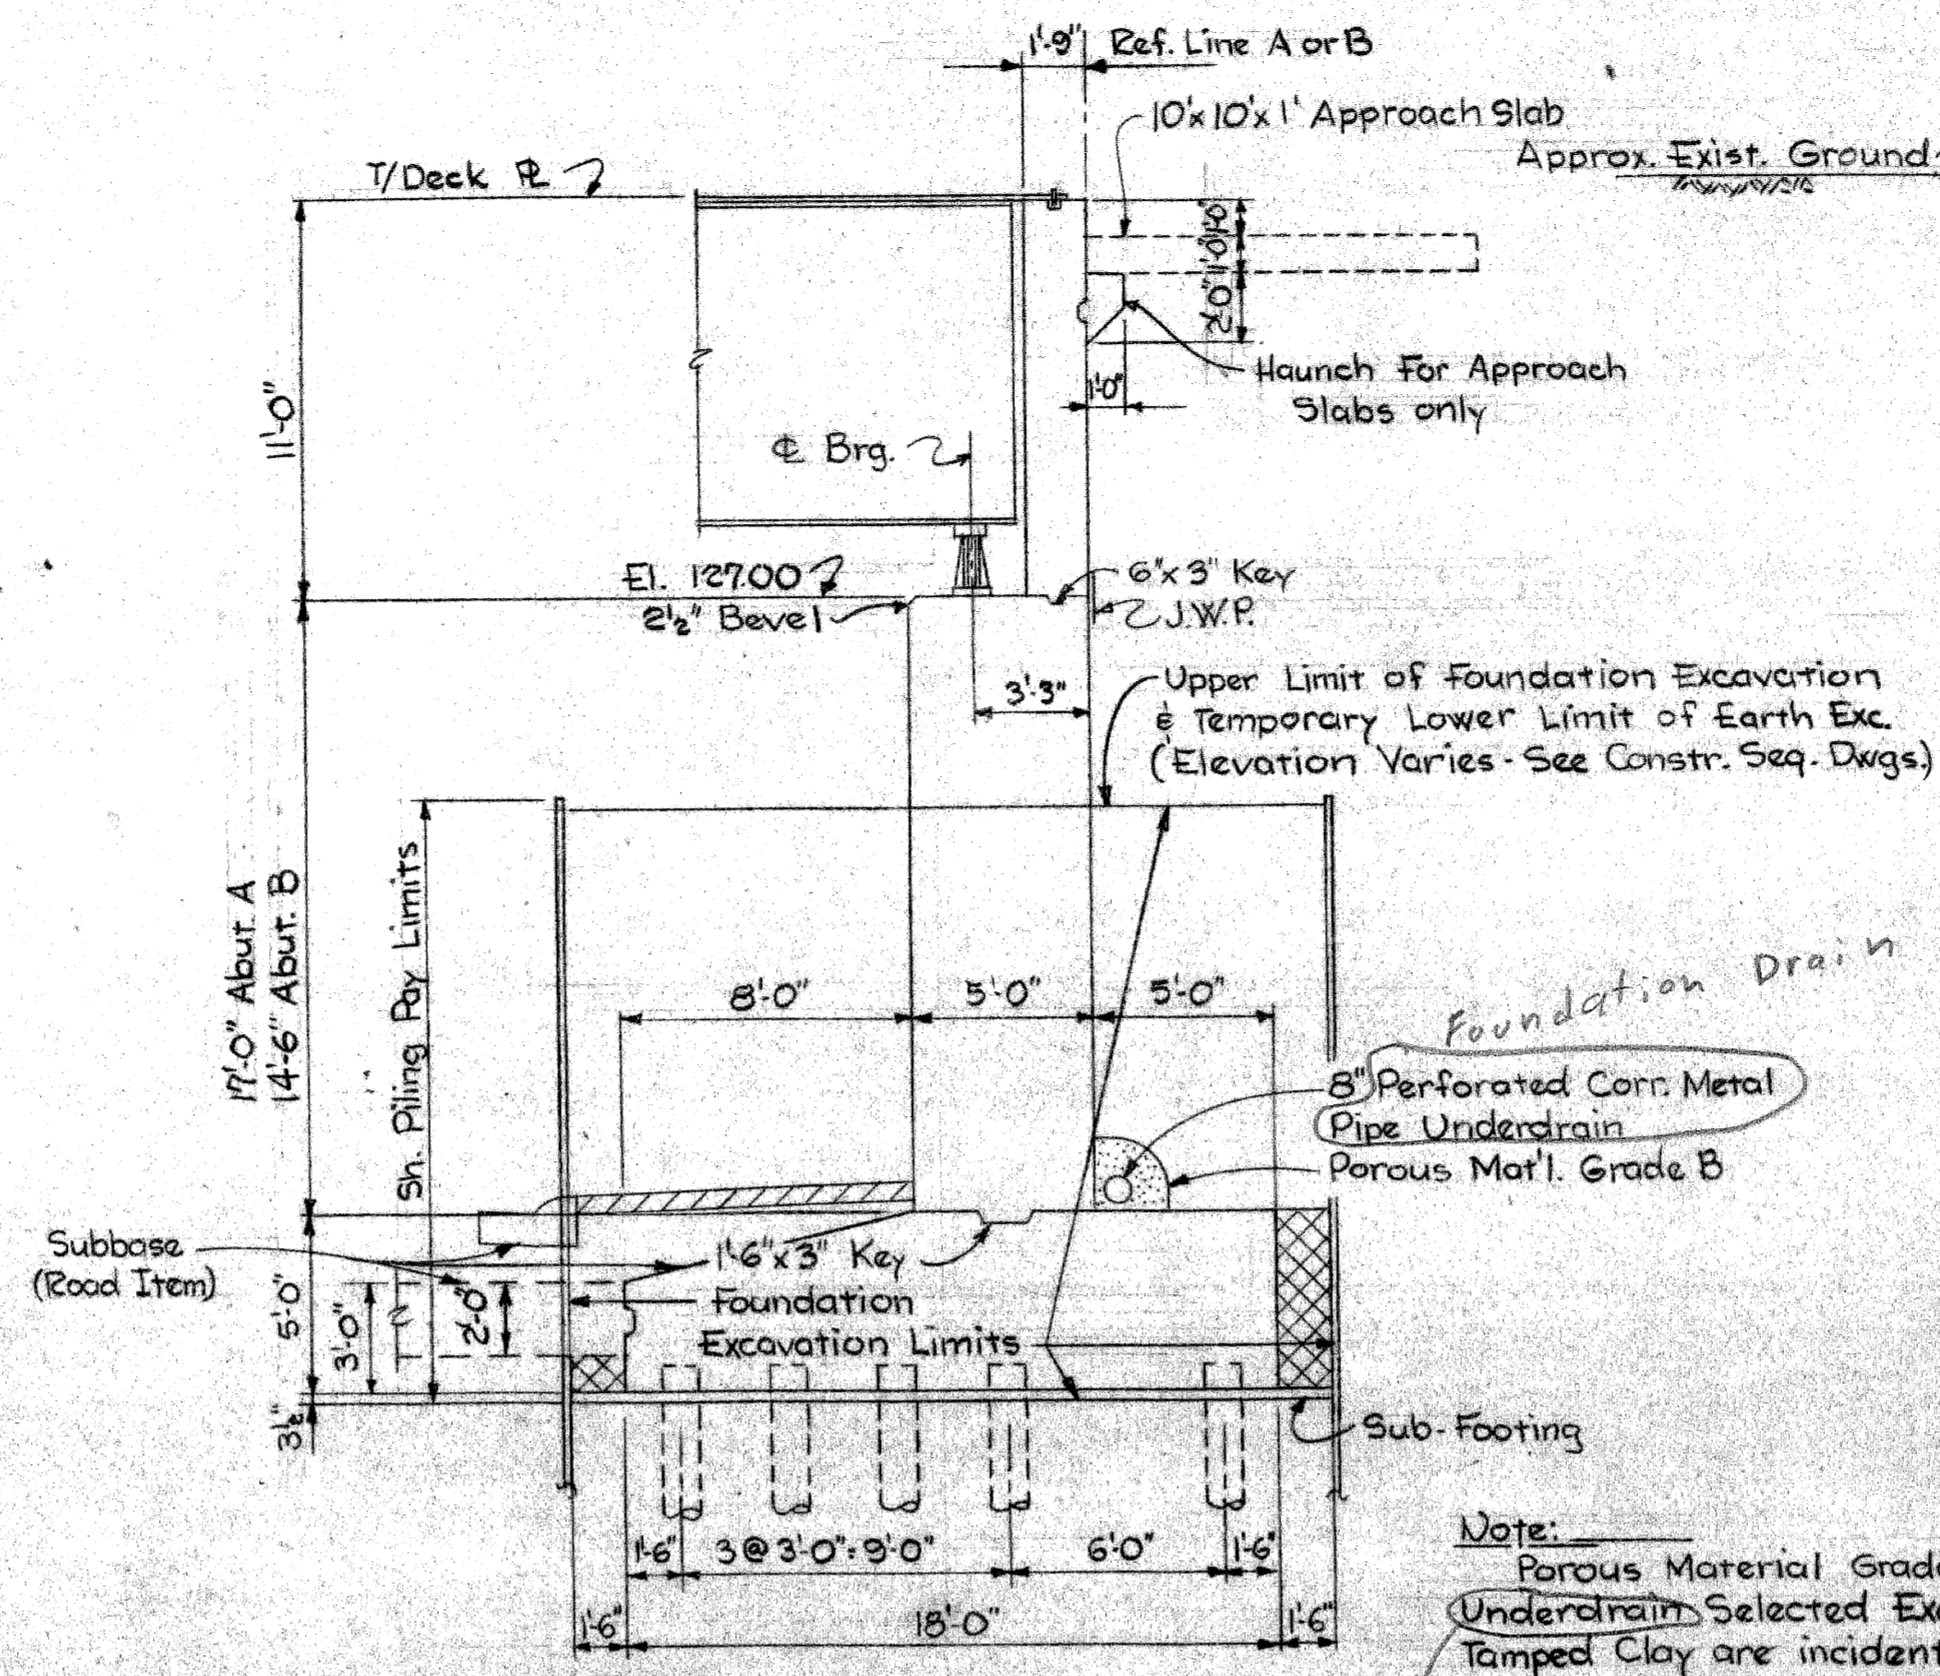 1'-9"
Ref. Line A or B
10'x 10'x 1' Approach Slab
Approx. Exist. Ground
T/Deck PL
1'-0"
1'-0"
2'-0"
Haunch For Approach
Slabs only
1'-0"
11'-0"
℄ Brg.
El. 127.00
2½" Bevel
6"x 3" Key
J.W.P.
3'-3"
Upper Limit of Foundation Excavation
& Temporary Lower Limit of Earth Exc.
(Elevation Varies - See Constr. Seq. Dwgs.)
17'-0" Abut. A
14'-6" Abut. B
Sh. Piling Pay Limits
8'-0"
5'-0"
5'-0"
Foundation Drain
8" Perforated Corr. Metal
Pipe Underdrain
Porous Mat'l. Grade B
Subbase
(Road Item)
1'-6"x 3" Key
Foundation
Excavation Limits
5'-0"
3'-0"
2'-0"
3½"
Sub-Footing
1'-6"
3 @ 3'-0" = 9'-0"
6'-0"
1'-6"
1'-6"
18'-0"
1'-6"
Note:
Porous Material Grad
Underdrain Selected Ex
Tamped Clay are incident